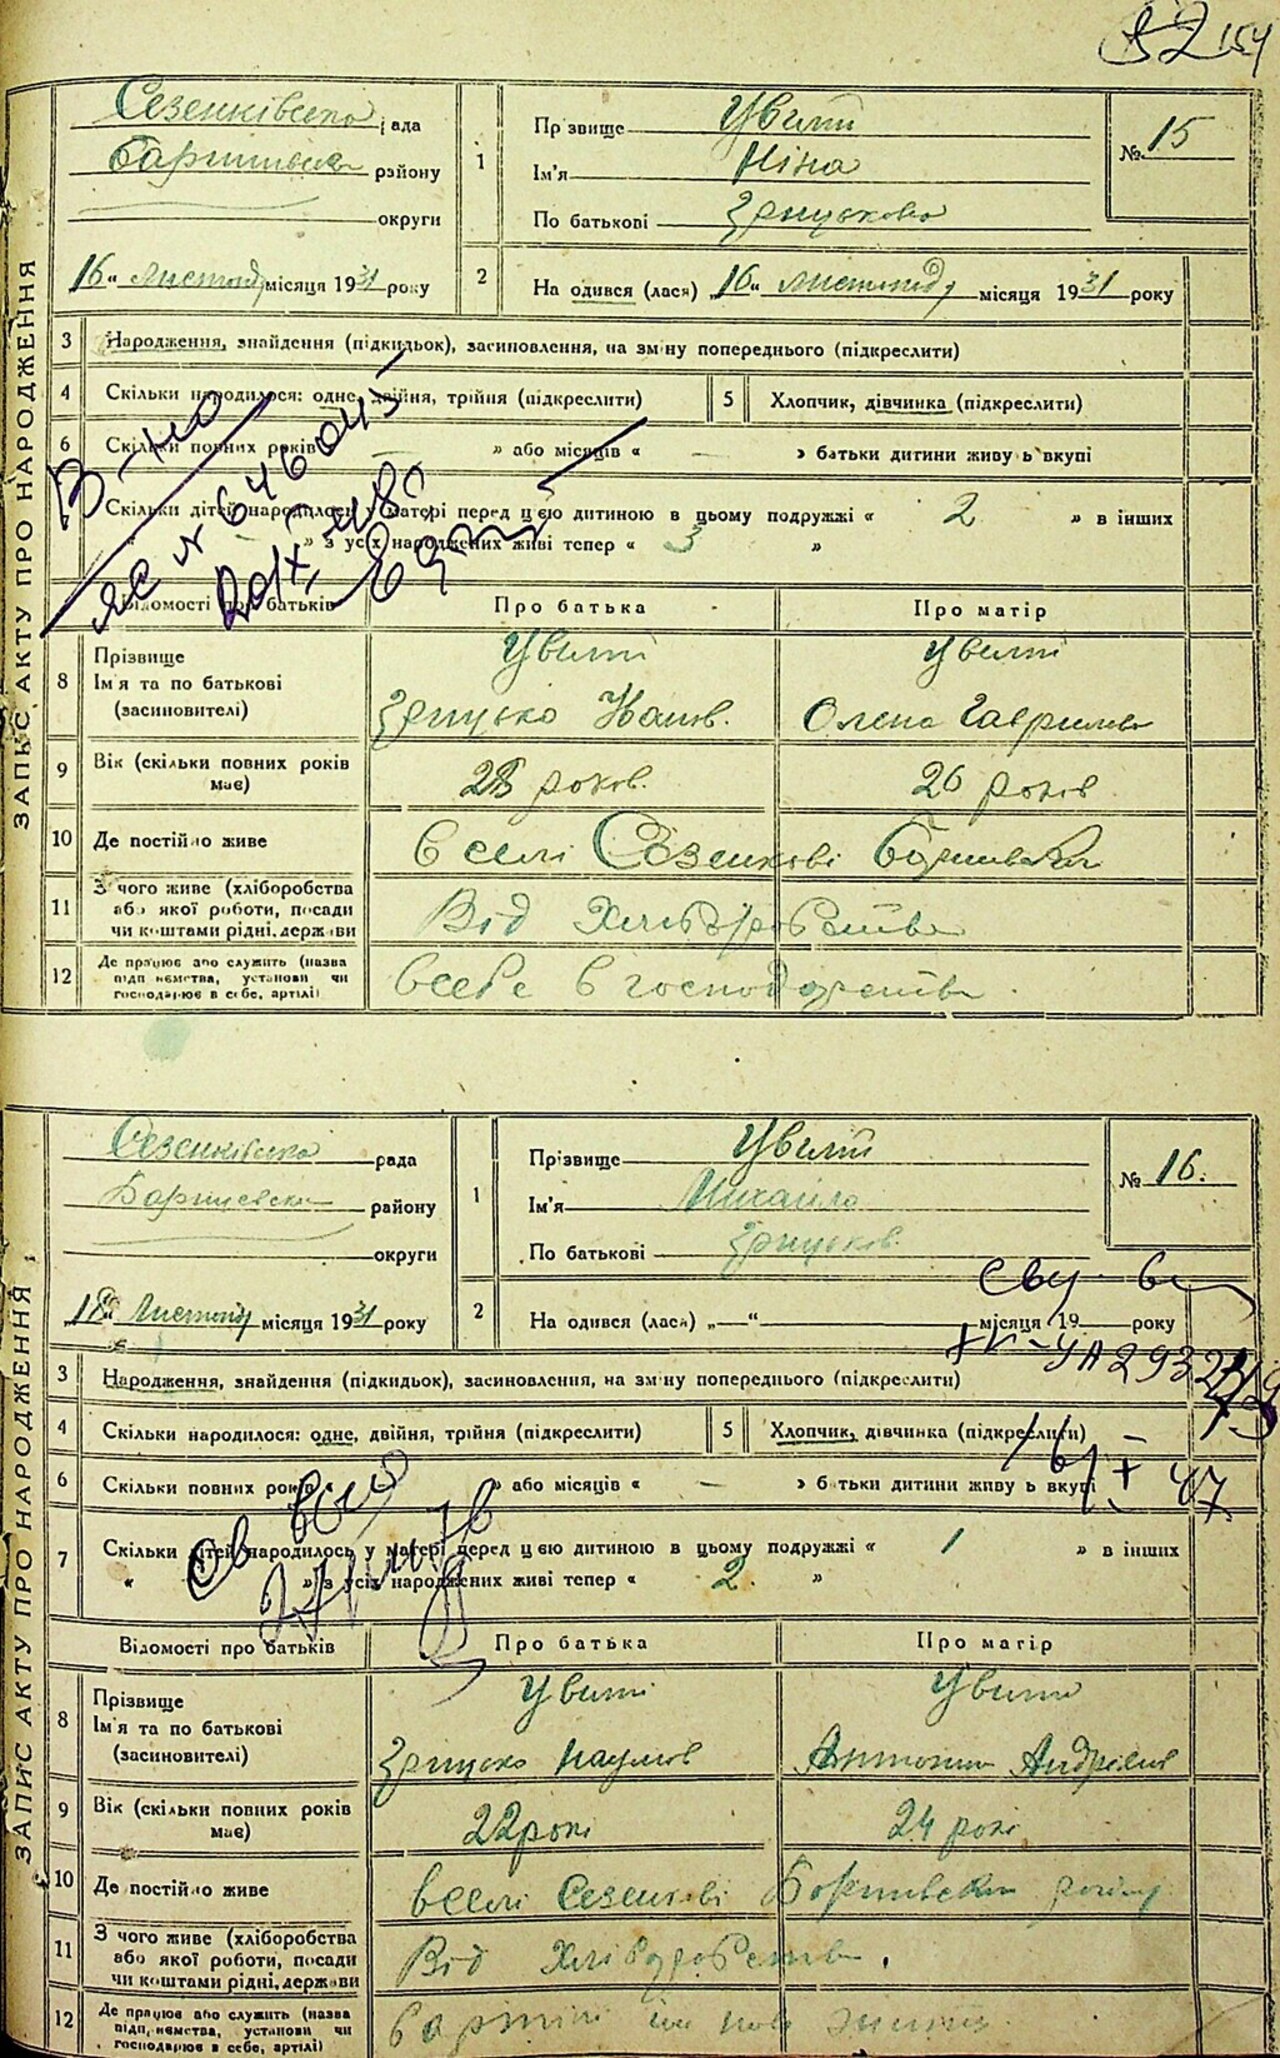 154
ЗАПИС АКТУ ПРО НАРОДЖЕННЯ
Сезенківська рада
району
округи
16 " листопаду місяця 1931 року
1
Прізвище Цвилій
Ім'я Ніна
По батькові Грицькова
№ 15
2
На одився (лася) „16" листопаду місяця 1931 року
3 Народження, знайдення (підкидьок), засиновлення, на зміну попереднього (підкреслити)
4 Скільки народилося: одне, двійня, трійня (підкреслити)
5 Хлопчик, дівчинка (підкреслити)
6 Скільки повних років — » або місяців « — » батьки дитини живуть вкупі
Скільки дітей народилось у матері перед цією дитиною в цьому подружжі « 2 » в інших
« - » з усіх народжених живі тепер « 3 »
Відомості про батьків Про батька Про матір
8 Прізвище
Ім'я та по батькові
(засиновителі)
Цвилій Цвилій
Грицько Наум. Олена Гаврилов
9 Вік (скільки повних років
має)
28 років. 26 років
10 Де постійно живе в селі Сезенкові
11 З чого живе (хліборобства
або якої роботи, посади
чи коштами рідні, держави
Від Хліборобства
12 Де працює або служить (назва
підприємства, установи чи
господарює в себе, артілі)
в себе в господарстві
ЗАПИС АКТУ ПРО НАРОДЖЕННЯ
Сезенківська рада
району
округи
„18" Листопаду місяця 1931 року
1
Прізвище Цвилій
Ім'я Михайло
По батькові Грицьков.
№ 16.
2
На одився (лася) „—" місяця 19 року
3 Народження, знайдення (підкидьок), засиновлення, на зміну попереднього (підкреслити)
4 Скільки народилося: одне, двійня, трійня (підкреслити)
5 Хлопчик, дівчинка (підкреслити)
6 Скільки повних років » або місяців « — » батьки дитини живуть вкупі
7 Скільки дітей народилось у матері перед цією дитиною в цьому подружжі « 1 » в інших
« » з усіх народжених живі тепер « 2. »
Відомості про батьків Про батька Про матір
8 Прізвище
Ім'я та по батькові
(засиновителі)
Цвилій Цвилій
Грицько Наумов Андріяна
9 Вік (скільки повних років
має)
22 рокі 24 рокі
10 Де постійно живе в селі Сезенкові
11 З чого живе (хліборобства
або якої роботи, посади
чи коштами рідні, держави
Від Хліборобства.
12 Де працює або служить (назва
підприємства, установи чи
господарює в себе, артілі)
в артілі